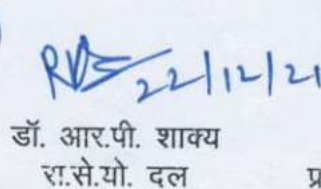 22/12/21
डॉ. आर.पी. शाक्य
रा.से.यो. दल
प्र